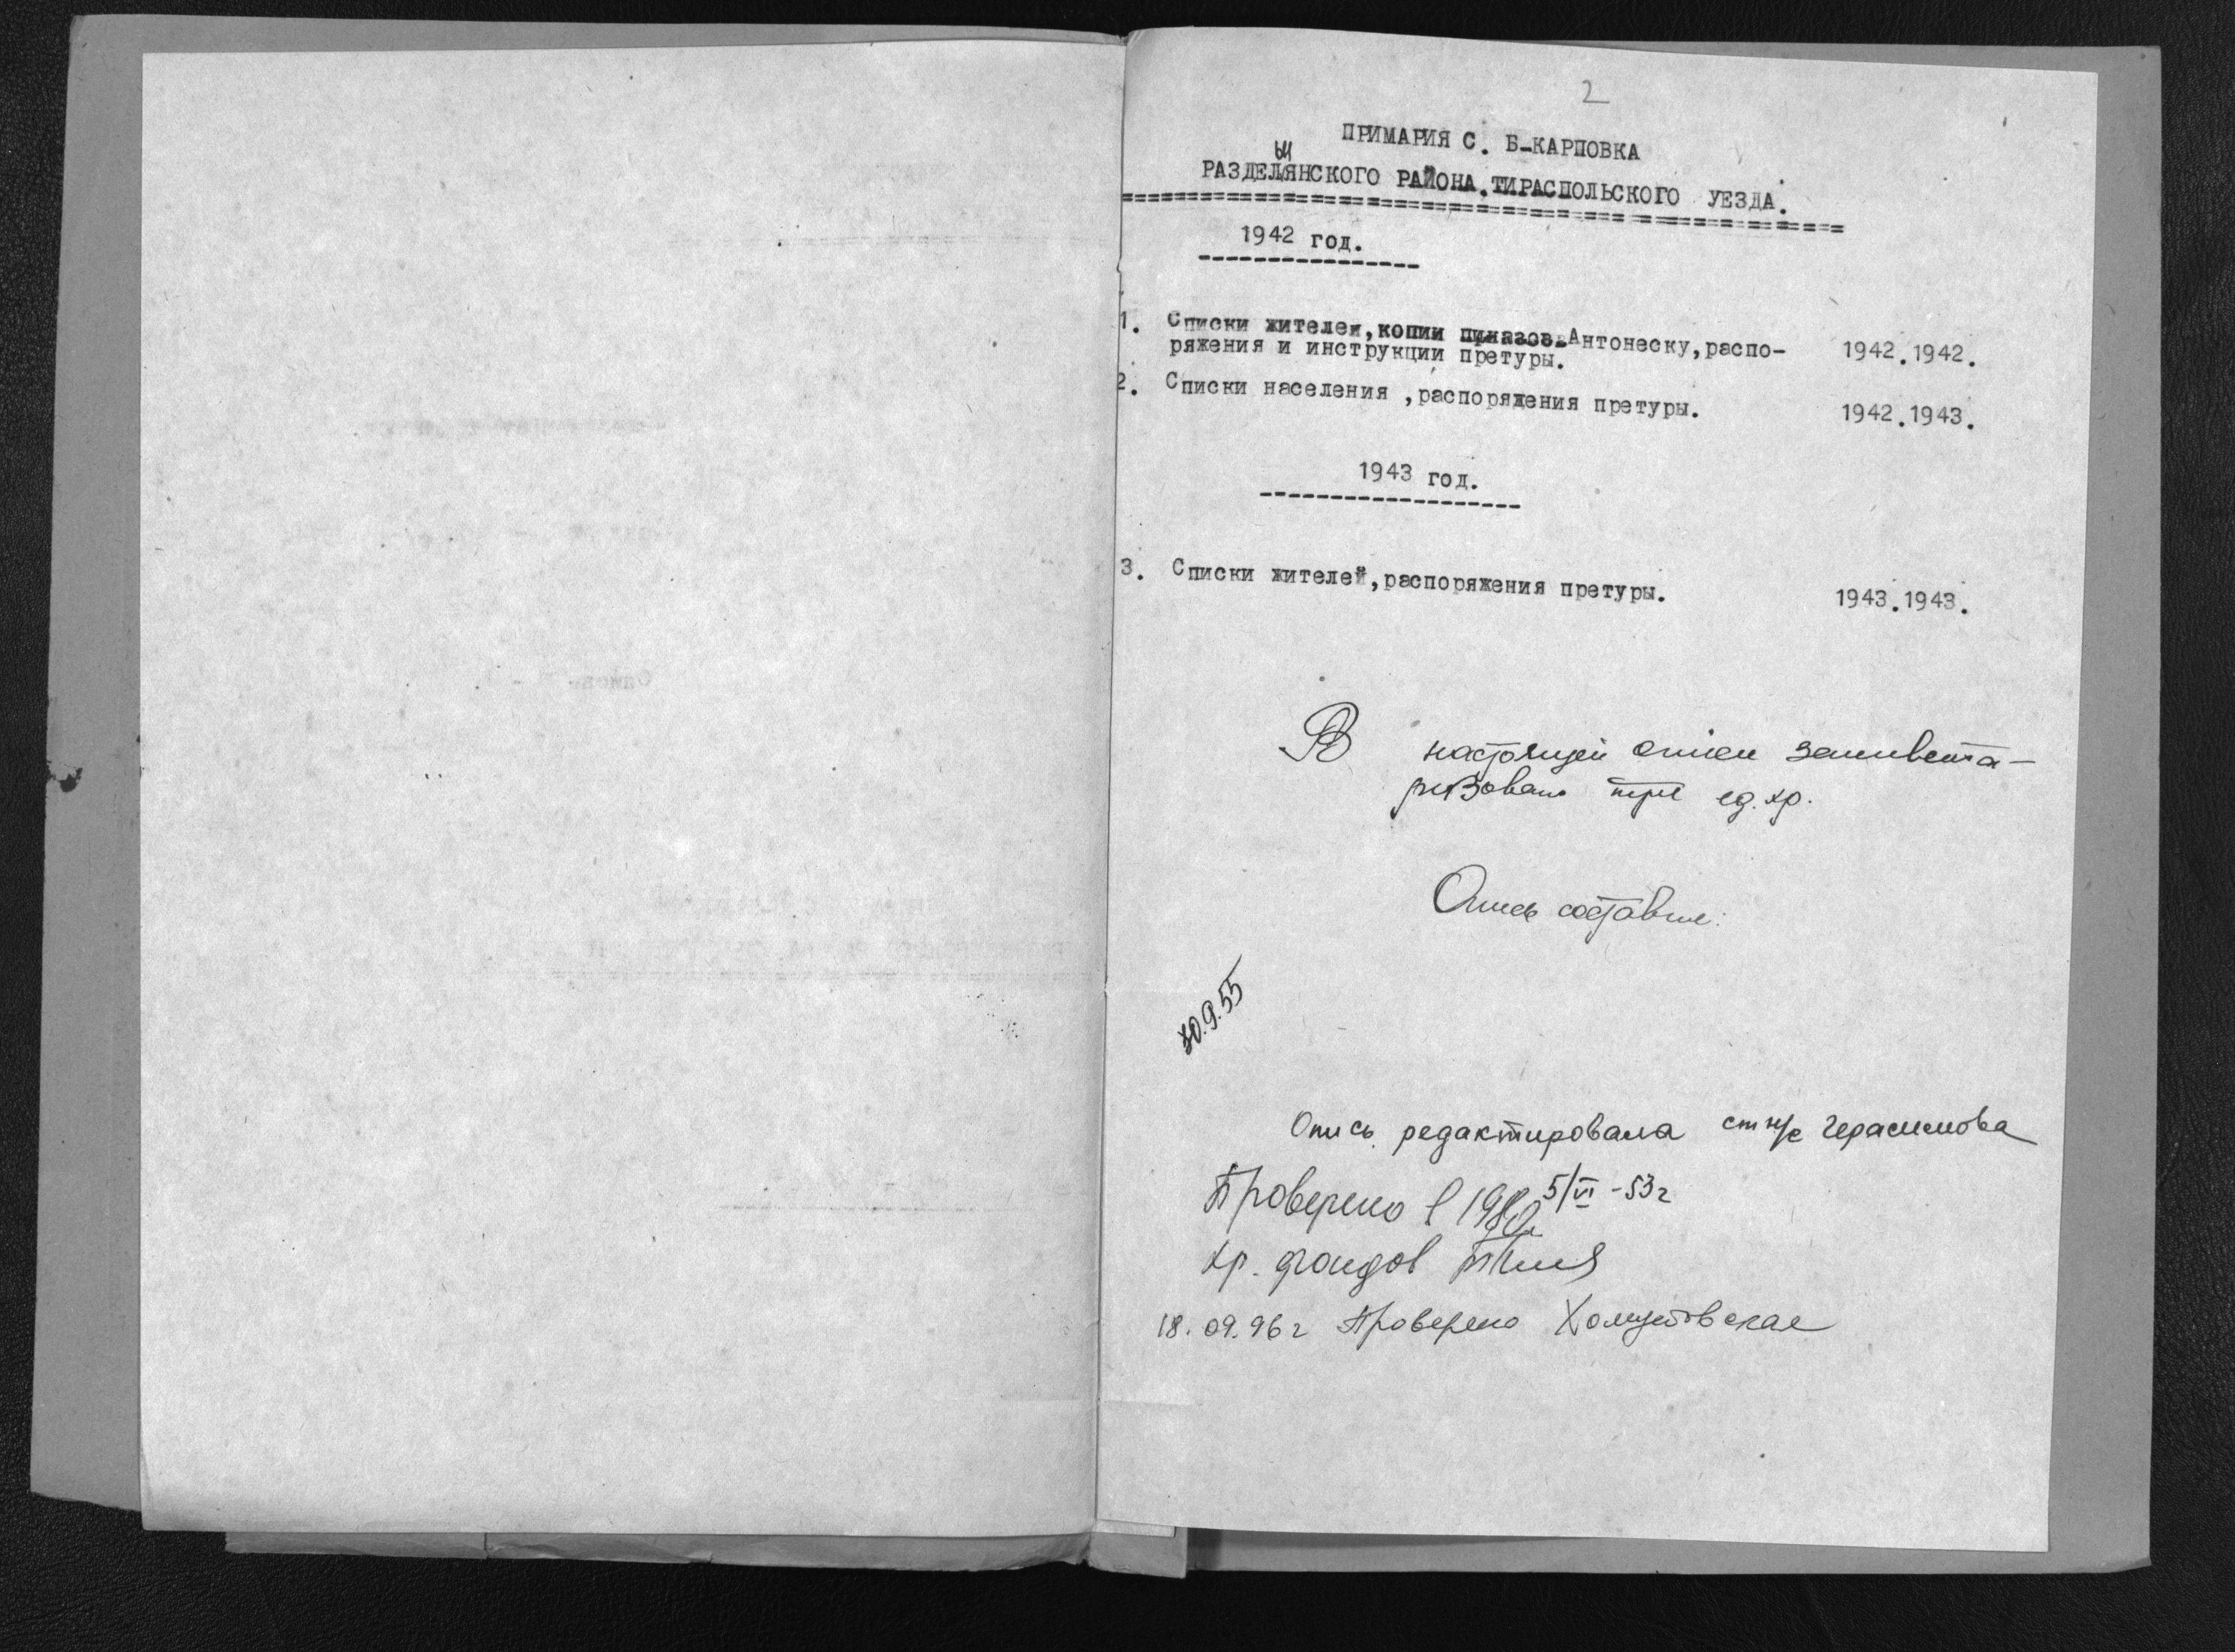 2
ПРИМАРИЯ С. Б-КАРПОВКА
РАЗДЕЛЬНЯНСКОГО РАЙОНА.ТИРАСПОЛЬСКОГО УЕЗДА.
1942 год.
1. Списки жителей,копии приказов Антонеску,распо- 1942.1942.
ряжения и инструкции претуры.
2. Списки населения ,распоряжения претуры. 1942.1943.
1943 год.
3. Списки жителей,распоряжения претуры. 1943.1943.
В настоящей описи заинвента-
ризовано три ед. хр.
Опись составил:
30.9.55
Опись редактировала ст н/с Герасимова
5/VI -53г
Проверено в 1980г
хр. фондов
18.09.96г Проверено Хомутовская